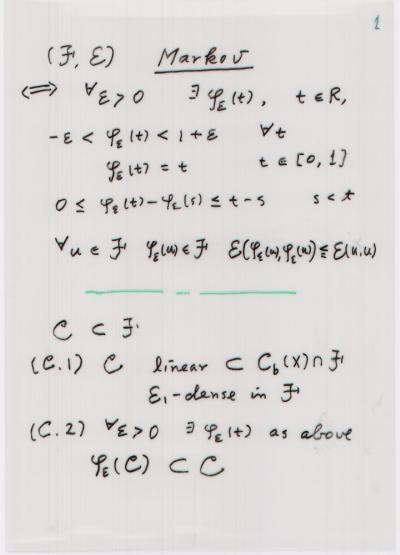 1
(ℱ, ℰ) Markov
⟺ ∀ε > 0 ∃ φ_ε(t), t ∈ R,
-ε < φ_ε(t) < 1 + ε ∀t
φ_ε(t) = t t ∈ [0, 1]
0 ≤ φ_ε(t) - φ_ε(s) ≤ t - s s < t
∀u ∈ ℱ φ_ε(u) ∈ ℱ ℰ(φ_ε(u), φ_ε(u)) ≦ ℰ(u, u)
C ⊂ ℱ
(C.1) C linear ⊂ C_b(X) ∩ ℱ
ℰ₁-dense in ℱ
(C.2) ∀ε > 0 ∃ φ_ε(t) as above
φ_ε(C) ⊂ C